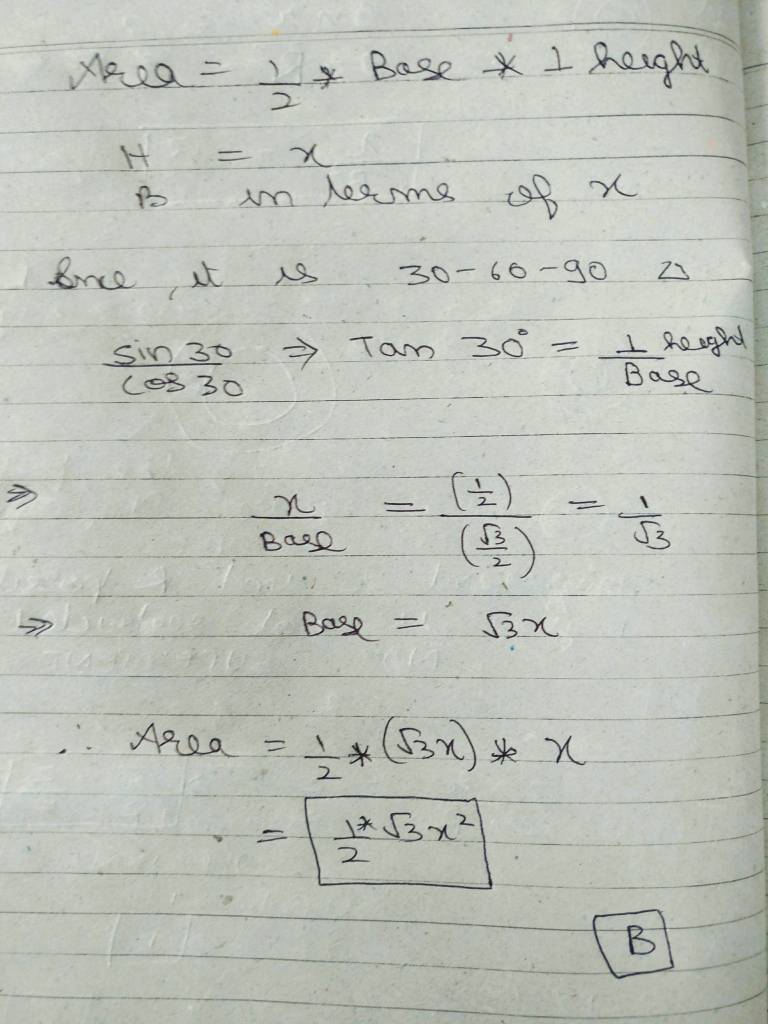 Area = 1/2 * Base * ⊥ height
H = x
B in terms of x
Since, it is 30-60-90 △
sin 30 / cos 30 ⇒ Tan 30° = ⊥ height / Base
⇒ x / Base = (1/2) / (√3/2) = 1/√3
⇒ Base = √3x
∴ Area = 1/2 * (√3x) * x
= 1/2 * √3x²
B